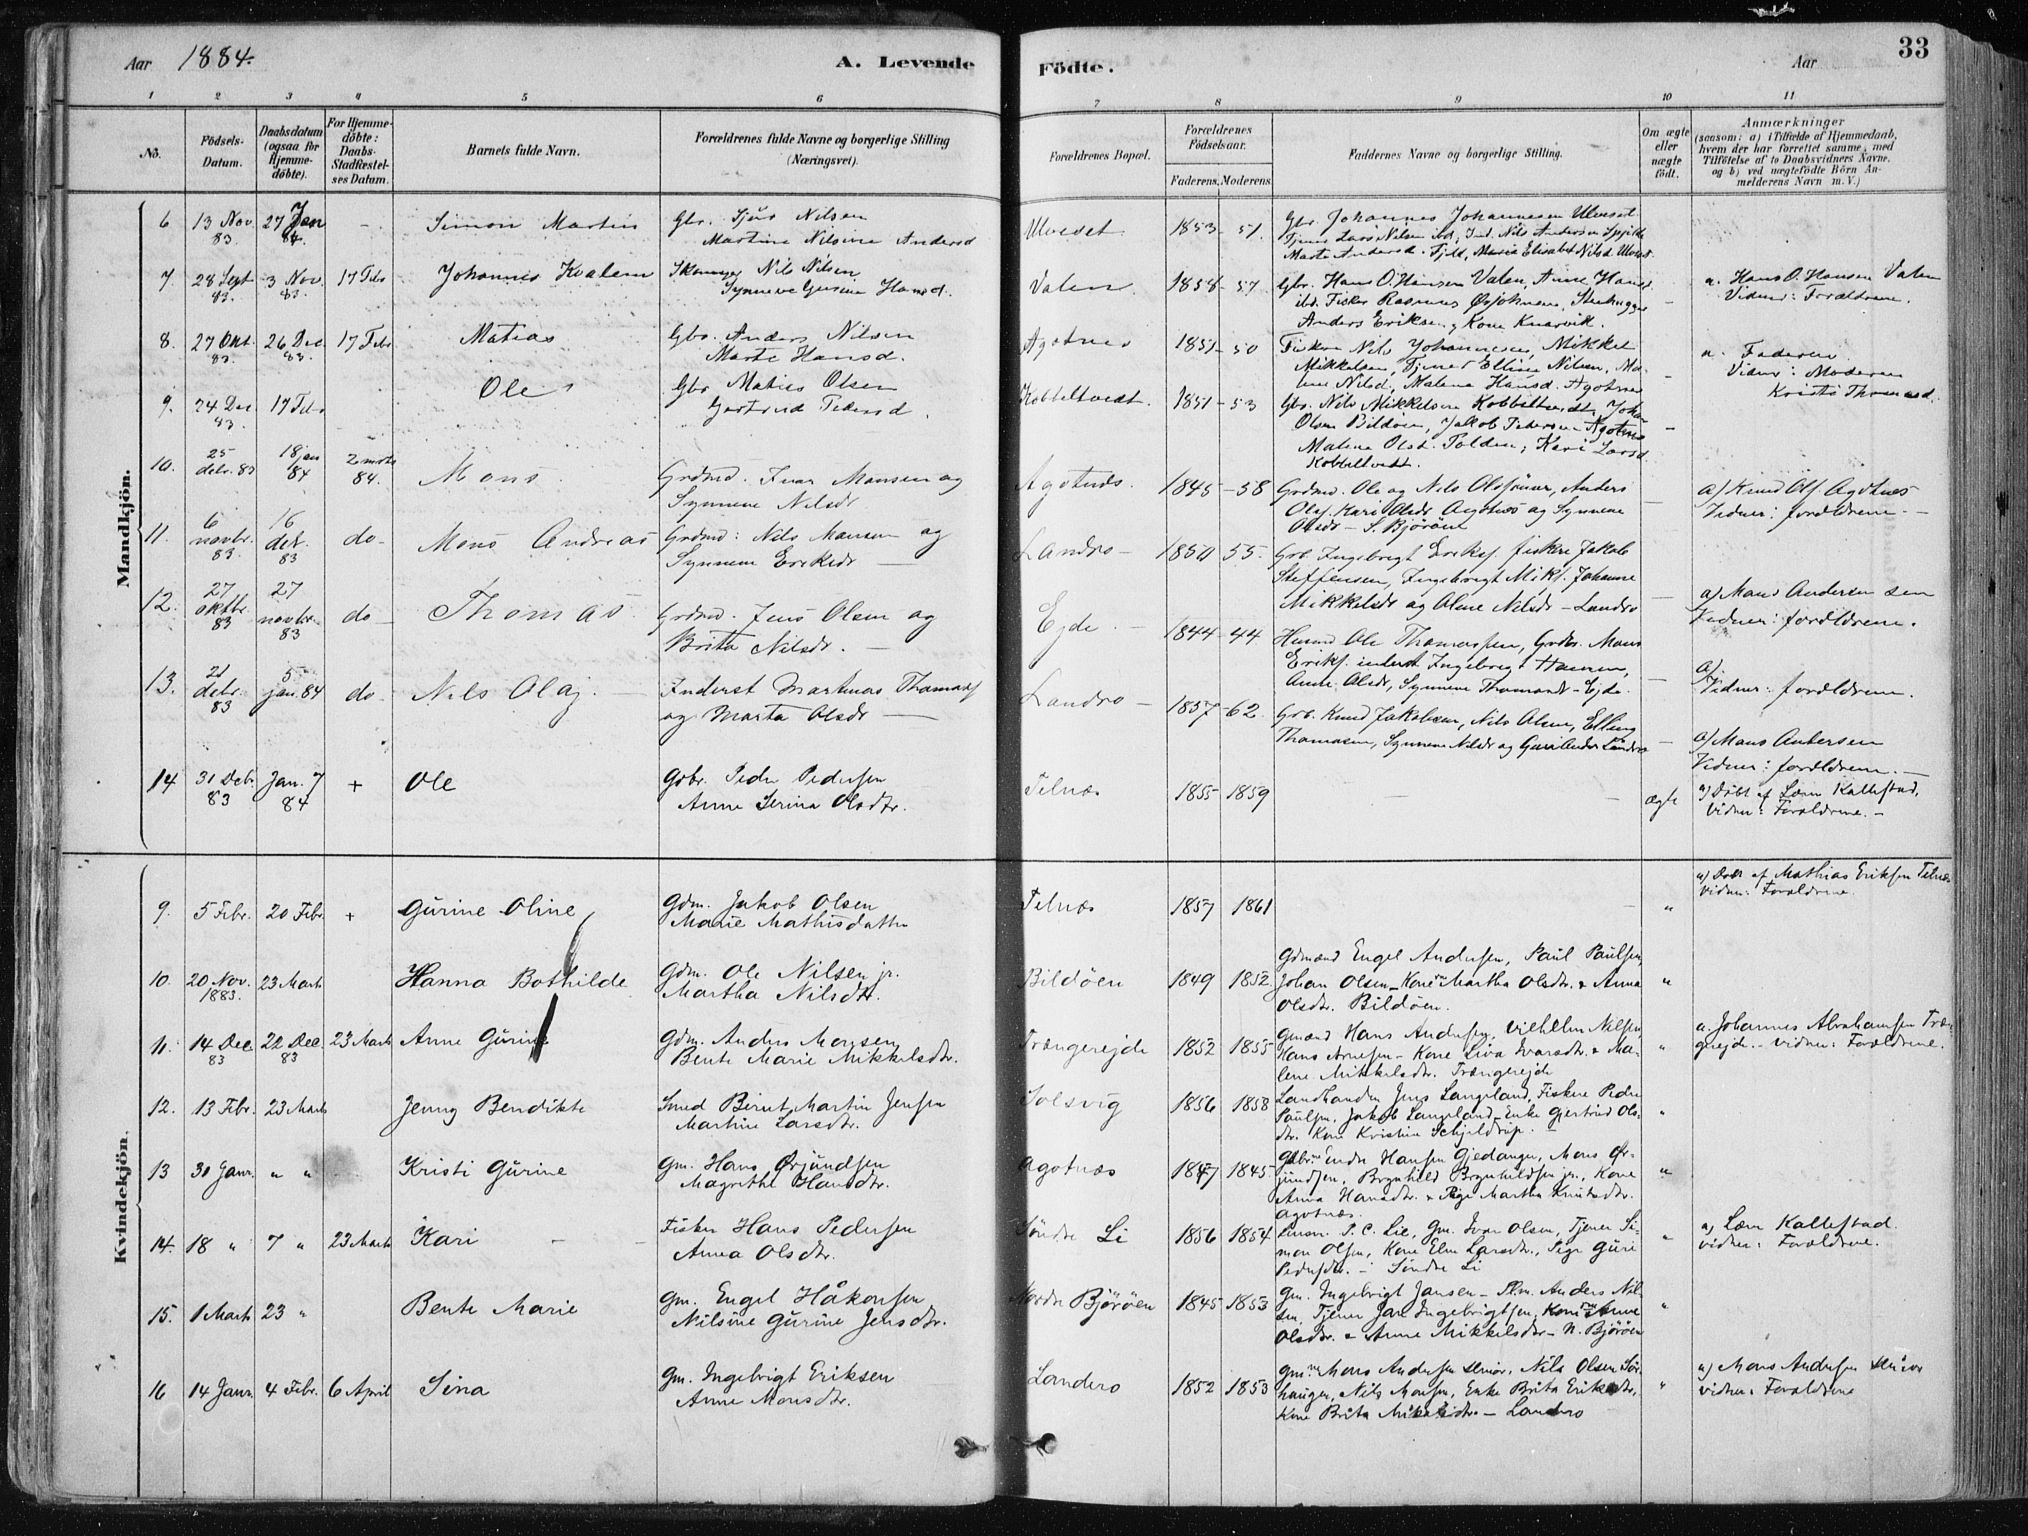 Aar 1884.
A. Levende Födte.
Aar
33
1 2 3 4 5 6 7 8 9 10 11
No.
Födsels-Datum.
Daabsdatum (ogsaa for Hjemme-döbte).
For Hjemme-döbte: Daabs-Stadfæstel-ses Datum.
Barnets fulde Navn.
Forældrenes fulde Navne og borgerlige Stilling (Næringsvei).
Forældrenes Bopæl.
Forældrenes Födselsaar.
Faderens. Moderens.
Faddernes Navne og borgerlige Stilling.
Om ægte eller uægte födt.
Anmærkninger
(saasom: a) i Tilfælde af Hjemmedaab,
hvem der har forrettet samme, med
Tilföielse af to Daabsvidners Navne,
og b) ved uægtefödte Börn An-
melderens Navn m. V.)
Mandkjön.
6 13 Nov 83. 27 Jan 84. - Simon Martin
Gbr. Sjur Nilsen
Martine Nilsine Andersd
Ulveset 1853 - 51.
Gbr. Johannes Johannesen Ulveset
7. 28 Sept 83. 3 Nov. 83. 17 Febr Johannes Kvalem
Nils Nilsen
Synneve Gurine Hansd.
Valen 1858 - 57
Gbr. Hans O. Hansen Valen, Anne Hansd
ibd. Fisker Rasmus
Anders Eriksen, Kone Knarvik.
a. Hans O. Hansen Valen
Vidner: Forældrene.
8. 27 Okt. 83. 26 Dec 83. 17 Febr Matias
Gbr. Anders Nilsen
Marte Hansd.
Agotnes 1851 - 50
Fisker Nils Johannesen, Mikkel
Mikkelsen, Tjener Elling Nilsen, Ma-
lene Nilsd, Malena Hansd. Agotnes
a. Faderen
Vidner: Moderen
9. 24 Dec. 83. 17 Febr Ole
Gbr Matias Olsen
Gertrud Pedersd.
Kobbeltvedt. 1851 - 53
Gbr. Nils Mikkelsen Kobbeltvedt, Johan
Olsen Bildöen, Jakob Pedersen Agotnes
Malena Olsd. Polden, Kari Larsd
Kobbeltvedt.
10. 25 debr. 83 18 jan 84 2 mrts 84. Mons.
Grdmd. Ivar Monsen og
Synneve Nilsdr
Agotnæs. 1845 - 58
Grdmd. Ole og Nils Olsönner, Anders
Olsf. Kari Olsdr Agotnæs og Synneve
Olsdr - S. Björöen
a) Knud Olf. Agotnæs
Vidner: forældrene. -
11. 6 novbr. 83 16 debr. 83 do - Mons Andreas
Grdmd: Nils Monsen og
Synneve Eriksdr -
Landro - 1850 55.
Grb. Ingebrigt Eriksf. fiskere Jakob
Steffensen, Ingebrigt Mikf. Johanne
Mikkelsdr og Oline Nilsdr - Landro
12. 27 oktbr. 83 27 novbr. 83 do - Thomas.
Grdmd. Jens Olsen og
Brita Nilsdr. -
Ejde. - 1844 - 44
Husmd Ole Thomassen, Grdbr. Mons
Eriksf. inderst Ingebrigt Hansen,
Anne Olsdr, Synneve Thomasdr - Ejde.
a) Mons Andersen sen
Vidner: forældrene.
13. 21 debr. 83 5 jan. 84 do - Nils Olaj.
Inderst Martinus Thomasf
og Marta Olsdr -
Landro - 1857 - 62.
Grb. Knud Jakobsen, Nils Olsen, Elling
Thomasen, Synneve Nilsdr og Guri Andr Landro
a)
Vidner: forældrene.
a) Mons Andersen
Vidner: forældrene. -
14 31 Debr. 83 Jan. 7 84 + Ole
Gdbr. Peder Pedersen
Anne Serina Olsdtr.
Telnæs 1855 1859 - - ægte
a) Döbt af Lærer Kallestad,
vidner: Forældrene. -
Kvindekjön.
9. 5 Febr. 20 Febr. + Gurine Oline
Gdm. Jakob Olsen
Marie Mathisdatter
Telnæs 1857 1861 "
a) Döbt af Mathias Eriksen Telnæs
vidner: Forældrene.
10. 20 Nov. 1883. 23 Marts Hanna Bothilde
Gdm. Ole Nilsen jr.
Martha Nilsdtr.
Bildöen 1849 1852
Gdmænd Engel Andersen, Paul Paulsen,
Johan Olsen - Kone Martha Olsdtr. & Anna
Olsdtr. Bildöen. "
11. 14 Dec 83 22 Dec. 83 23 Marts Anne Gurine
Gdm. Anders Monsen
Bente Marie Mikkelsdtr.
Trængerejde 1852 1855
Gmænd Hans Andersen, Vilhelm Nilsen,
Hans Arnesen - Kone Siva Ivarsdtr. & Ma-
lene Mikkelsdtr. Trængerejde "
a. Johannes Abrahamsen Træn-
gerejde. - vidner: Forældrene.
12. 13 Febr. 23 Marts Jenny Bendikte
Smed Bernt Martin Jensen
Martine Larsdtr.
Solsvig 1856 1858
Landhandler Jens Langeland, Fisker Peder
Paulsen, Jakob Langeland - Enke Gjertrud Ols-
dtr. Kone Kristine Schjeldrup. - "
13 31 Janr. " " Kristi Gurine
Gm. Hans Örjundsen
Magrethe Hansdtr.
Agotnæs 1847 1845
Gdbr. Endre Hansen Gjedanger, Mons Ör-
jundsen, Brynhild Brynhildsen jr., Kone
Anna Hansdtr. & Pige Martha Knutsdtr.
Agotnæs. "
14. 18 " 7 " 23 Marts Kari - -
Fisker Hans Pedersen
Anna Olsdtr.
Söndre Li 1856 1854
Lensm. P. C. Lie, Gm. Ivar Olsen, Tjener Si-
mon Olsen, Kone Elen Larsdtr., Pige Guri
Pedersdtr. - Söndre Li "
a) Lærer Kallestad.
vidner: Forældrene.
15. 1 Marts 23 " Bente Marie
Gm. Engel Håkonsen
Nilsine Gurine Jensdtr.
Nordre Björöen 1845 1853
Gm. Ingebrigt Jansen - Plm. Anders Nil-
sen, Tjener Jan Ingebrigtsen, Kone Anne
Olsdtr. & Anne Mikkelsdtr - N. Björöen "
16 14 Janr. 4 Febr. 6 April Sina
Gm. Ingebrigt Eriksen
Anne Monsdtr.
Landero 1852 1853
Gm. Mons Andersen senior, Nils Olsen Sör-
haugen, Nils Monsen, Enke Brita Eriksdtr.
Kone Brita Mikkelsdtr. - Landero "
a) Mons Andersen senior
vidner: Forældrene